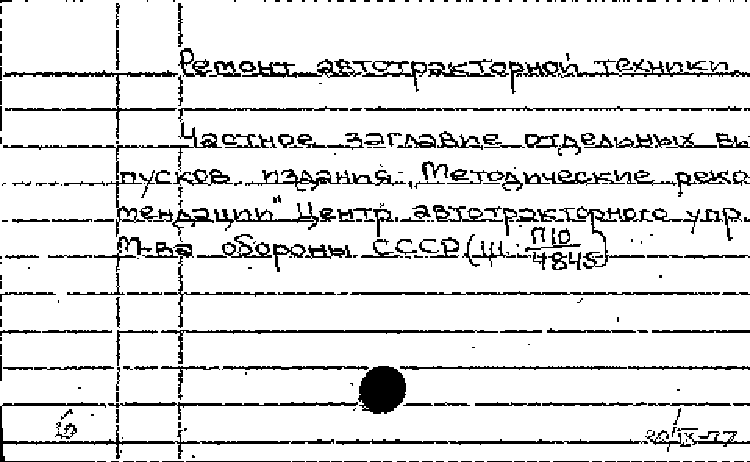 Ремонт автотракторной техники.
Частное заглавие отдельных вы
пусков издания „Методические реко
мендации" Центр. автотракторного упр.
М-ва обороны СССР (Ш: П10/4845)
20/IX-77